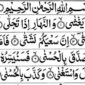 بِسْمِ اللَّهِ الرَّحْمَٰنِ الرَّحِيمِ
يَغْشَىٰ وَالنَّهَارِ إِذَا تَجَلَّىٰ
إِنَّ سَعْيَكُمْ لَشَتَّىٰ
بِالْحُسْنَىٰ
وَاسْتَغْنَىٰ وَكَذَّبَ بِالْحُسْنَىٰ